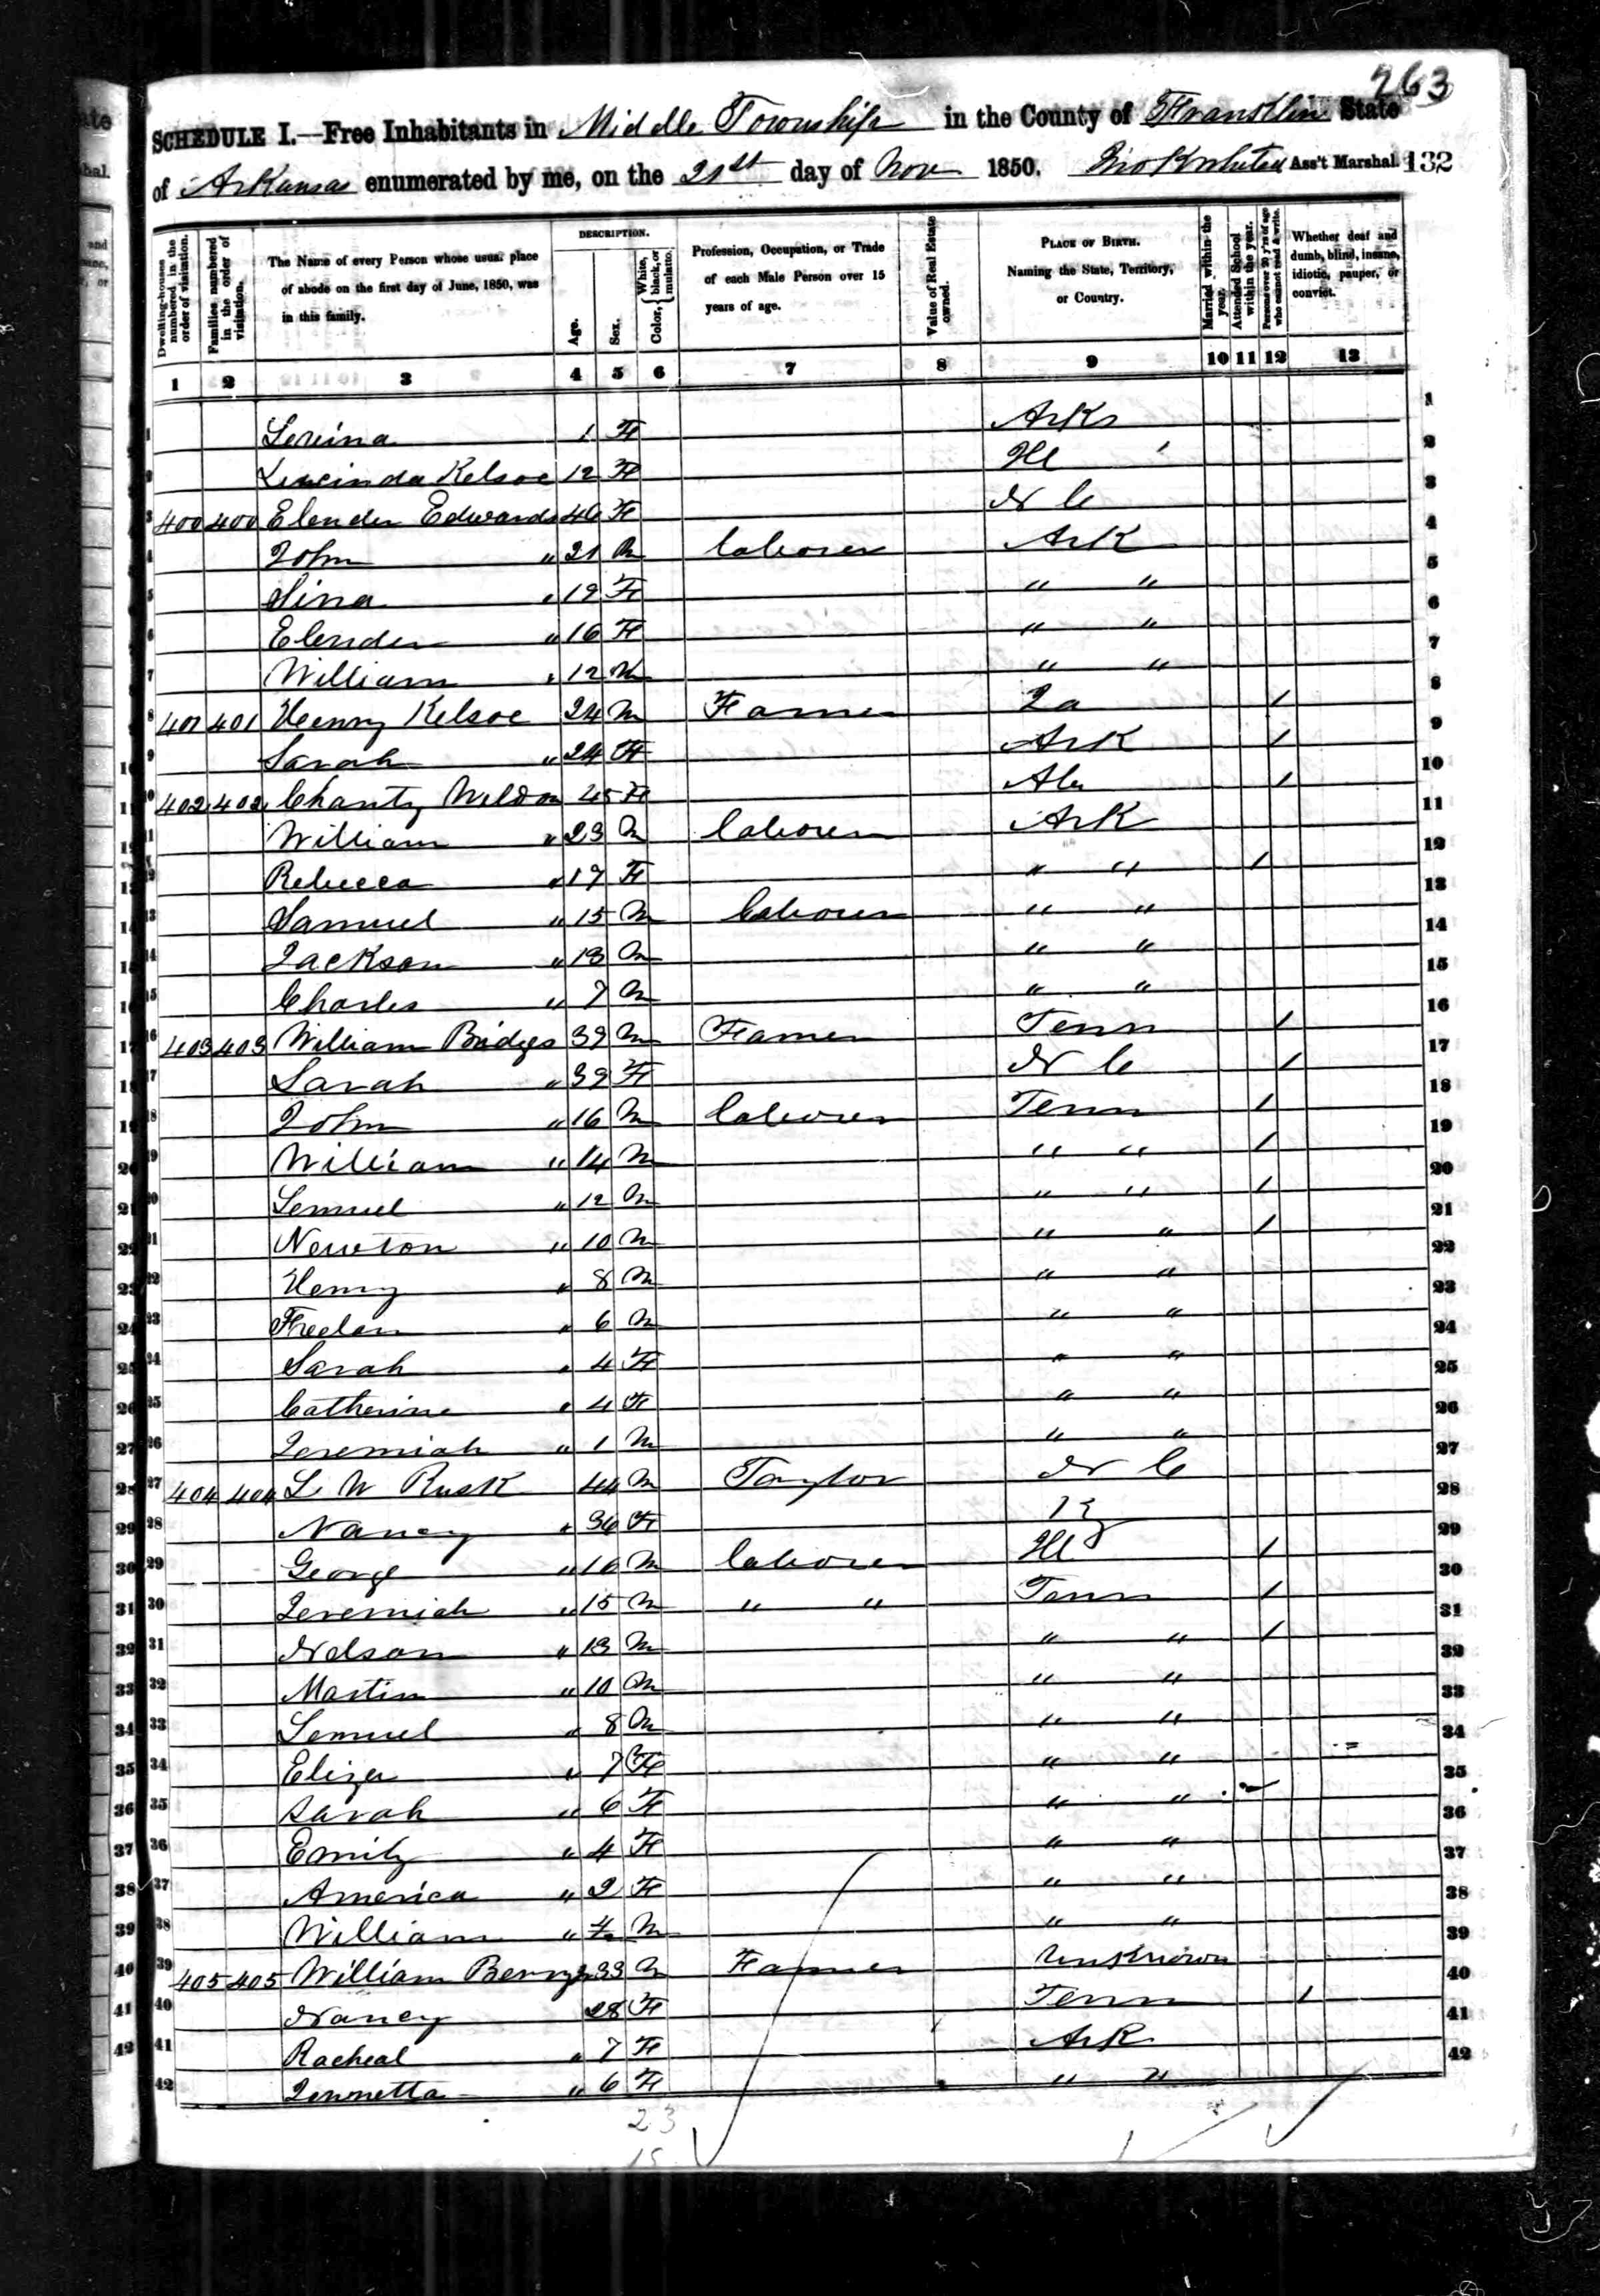 263
SCHEDULE I.—Free Inhabitants in Middle Township in the County of Franklin State
of Arkansas enumerated by me, on the 21st day of Nov 1850. Ass't Marshal. 132
Dwelling-houses numbered in the order of visitation.
Families numbered in the order of visitation.
The Name of every Person whose usual place of abode on the first day of June, 1850, was in this family.
DESCRIPTION.
Age.
Sex.
Color, { White, black, or mulatto.
Profession, Occupation, or Trade of each Male Person over 15 years of age.
Value of Real Estate owned.
PLACE OF BIRTH. Naming the State, Territory, or Country.
Married within the year.
Attended School within the year.
Persons over 20 y'rs of age who cannot read & write.
Whether deaf and dumb, blind, insane, idiotic, pauper, or convict.
1 2 3 4 5 6 7 8 9 10 11 12 13
1 Lerina 1 F Arks 1
2 Lucinda Kelsoe 12 F Ill 2
3 400 400 Elender Edwards 46 F N C 3
4 John " 21 M Laborer Ark 4
5 Sina " 19 F " " 5
6 Elender " 16 F " " 6
7 William " 12 M " " 7
8 401 401 Henry Kelsoe 24 M Farmer La / 8
9 Sarah " 24 F Ark / 9
10 402 402 Charity Weldon 45 F Ala / 10
11 William " 23 M Laborer Ark 11
12 Rebecca " 17 F " " / 12
13 Samuel " 15 M Laborer " " 13
14 Jackson " 13 M " " 14
15 Charles " 7 M " " 15
16 403 403 William Bridges 39 M Farmer Tenn / 16
17 Sarah " 39 F N C / 17
18 John " 16 M Laborer Tenn / 18
19 William " 14 M " " / 19
20 Lemuel " 12 M " " / 20
21 Newton " 10 M " " / 21
22 Henry " 8 M " " 22
23 Freelan " 6 M " " 23
24 Sarah " 4 F " " 24
25 Catherine " 4 F " " 25
26 Jeremiah " 1 M " " 26
27 404 404 L W Rusk 44 M Taylor N C 27
28 Nancy " 36 F Ky 28
29 George " 16 M Laborer Ill / 29
30 Jeremiah " 15 M " " Tenn / 30
31 Nelson " 13 M " " / 31
32 Martin " 10 M " " 32
33 Lemuel " 8 M " " 33
34 Eliza " 7 F " " 34
35 Sarah " 6 F " " 35
36 Emily " 4 F " " 36
37 America " 2 F " " 37
38 William " M " " 38
39 405 405 William Berry 33 M Farmer Unknown 39
40 Nancy 28 F Tenn / 40
41 Racheal " 7 F Ark 41
42 Jennetta " 6 F " " 42
23